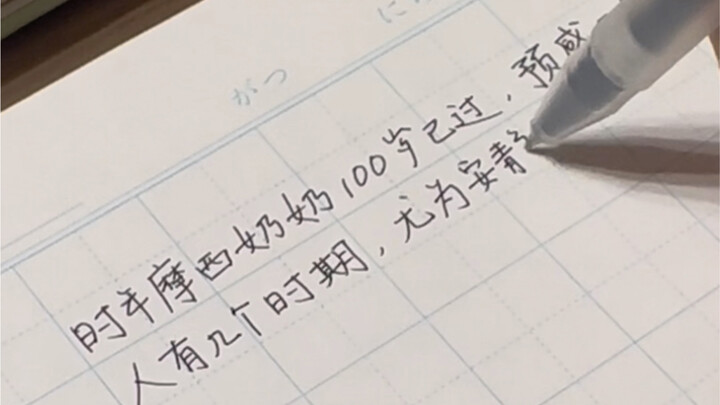 に
がつ
时年摩西奶奶100岁已过，预
人有几个时期，尤为安